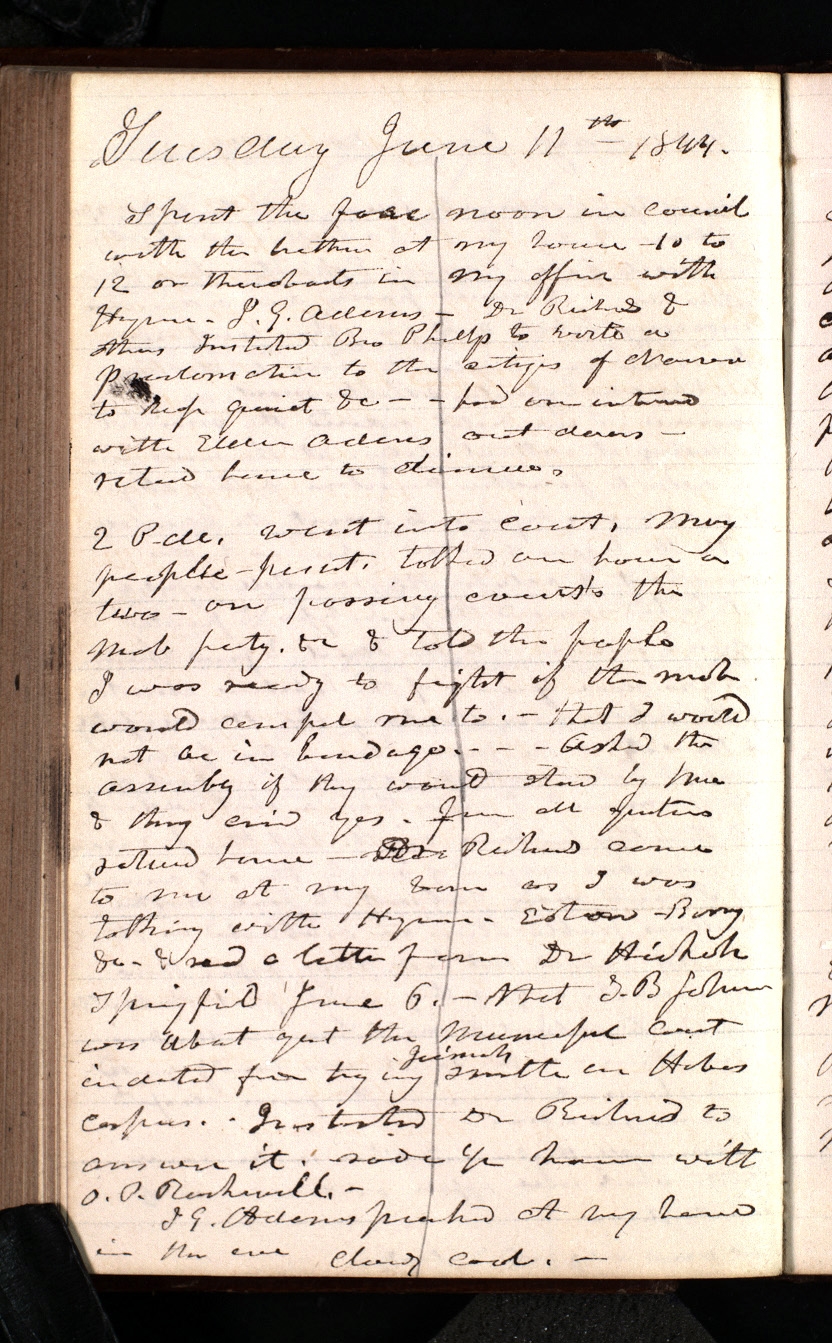 Tuesday June 11th 1844.
Spent the fore noon in council
with the brethren at my house 10 to
12 or in my office with
Hyrum - J. G. Adams - Dr Richards &
others Instructed Bro Phelps to write a
proclamation to the citizens of
to keep quiet &c - - had an interview
with Elder Adams out doors -
returned home to dinner.
2 P.M. went into court. Many
people present. talked an hour or
two - on passing events the
Mob party. &c & told the people
I was ready to fight if the mob
would compel me to. - that I would
not be in bondage. - - - asked the
assembly if they would stand by me
& they cried yes. from all quarters
returned home - Dr. Richards came
to me at my room as I was
talking with Hyrum -
&c - & read a letter from Dr Hickok
Springfield June 6. - that J. B
was about get the Municipal Court
indicted for trying Jeremiah Smith on Habeas
corpus. - Instructed Dr Richards to
answer it. rode home with
O. P. Rockwell. -
J G. Adams preached at my house
in the eve cloudy cool. -